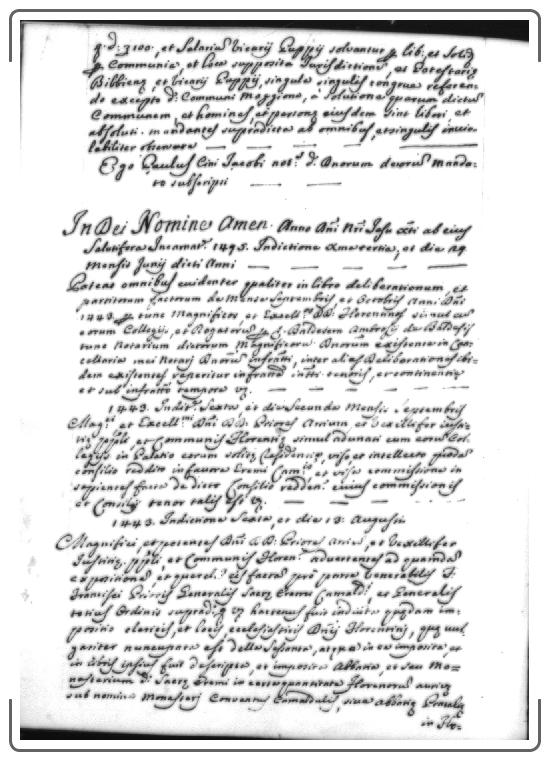 q. d: 3100, et Salaria Vicarij Puppij solvantur p lib: et Solid
p Communia, et loca supposita Jurisdictioni, et Potestaria
Bibbienæ, et Vicarij Puppij, singula singulis congrue referen
do excepto d: Communi Moggiona, à solutione quorum dictum
Communem, et homines, et personæ eiusdem sint liberi et
absoluti. mandantes supradicta ab omnibus, et singulis invio-
labiliter observare
Ego Paulus Cini Jacobi not. d. Dnorum de eorum Manda-
to subscripsi
In Dei Nomine Amen. Anno Dni Nri Jesu Xti ab eius
Salutifera Incarnat. 1495. Indictione Xma tertia, et die 29
Mensis Junij dicti Anni
Pateat omnibus evidenter qualiter in libro deliberationum, et
partitorum factorum de Mense Septembris, et Octobris Anni Dni
1443. p tunc Magnificos et Excell. DD. Florenos simul cum
eorum Collegijs, et Rogatorum p S. Baldesem Ambrosij
tunc Notarium dictorum Magnificorum Dnorum existente in Can
cellaria mei Notarij Dnorum infratti, inter alias Deliberationes ibi-
dem existentes reperitur infratta infratti tenoris, et continentiæ
et sub infratto tempore vz.
1443. Indict. Sexta, et die Secunda Mensis Septembris
Mag. et Excell. Dni DD. Priores Artium, et Vexillifer Justi-
tiæ ppli, et Communis Florentiæ simul adunati cum eorum Col-
legijs in Palatio eorum solitæ Residentiæ viso et intellecto quodam
consilio reddito in favore Eremi Cam. et visa commissione in
sapientes facta de dicto Consilio redden. cuius commissionis
et Consilij tenor talis est vz.
1443. Indictione Sexta, et die 13. Augusti
Magnifici, et potentes Dni DD. Priores Artiu, et Vexillifer
Justitiæ, ppli, et Communis Floren. advertentes ad quamdam
expositionem, et querel. eis factam pro parte Venerabilis F.
Francisci Prioris Generalis Sacræ Eremi Camald. et Generalis
totius Ordinis supradi. vz hactenus fuit indicta quædam im-
positio clericis, et locis ecclesiasticis Dnij Florentini, quæ vul
gariter nuncupata est della Sessanta, atque in ea imposita, et
in libris ipsius fuit descripta, et imposita Abbatia, et seu Mo-
nasterium d: Sacræ Eremi in certa quantitate Florenorum auri
sub nomine Monasterij Conventus Camaldulis, sive Abbatiæ
in Flo-